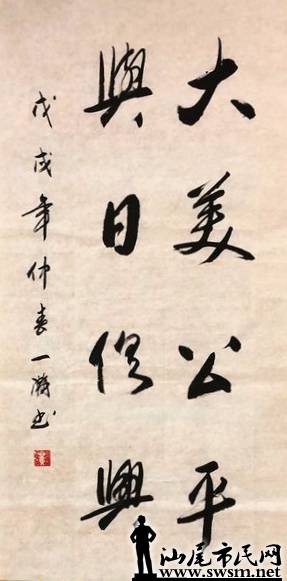 大美公平
與日俱興
戊戌年仲春一腾书
汕尾市民网
www.swsm.net